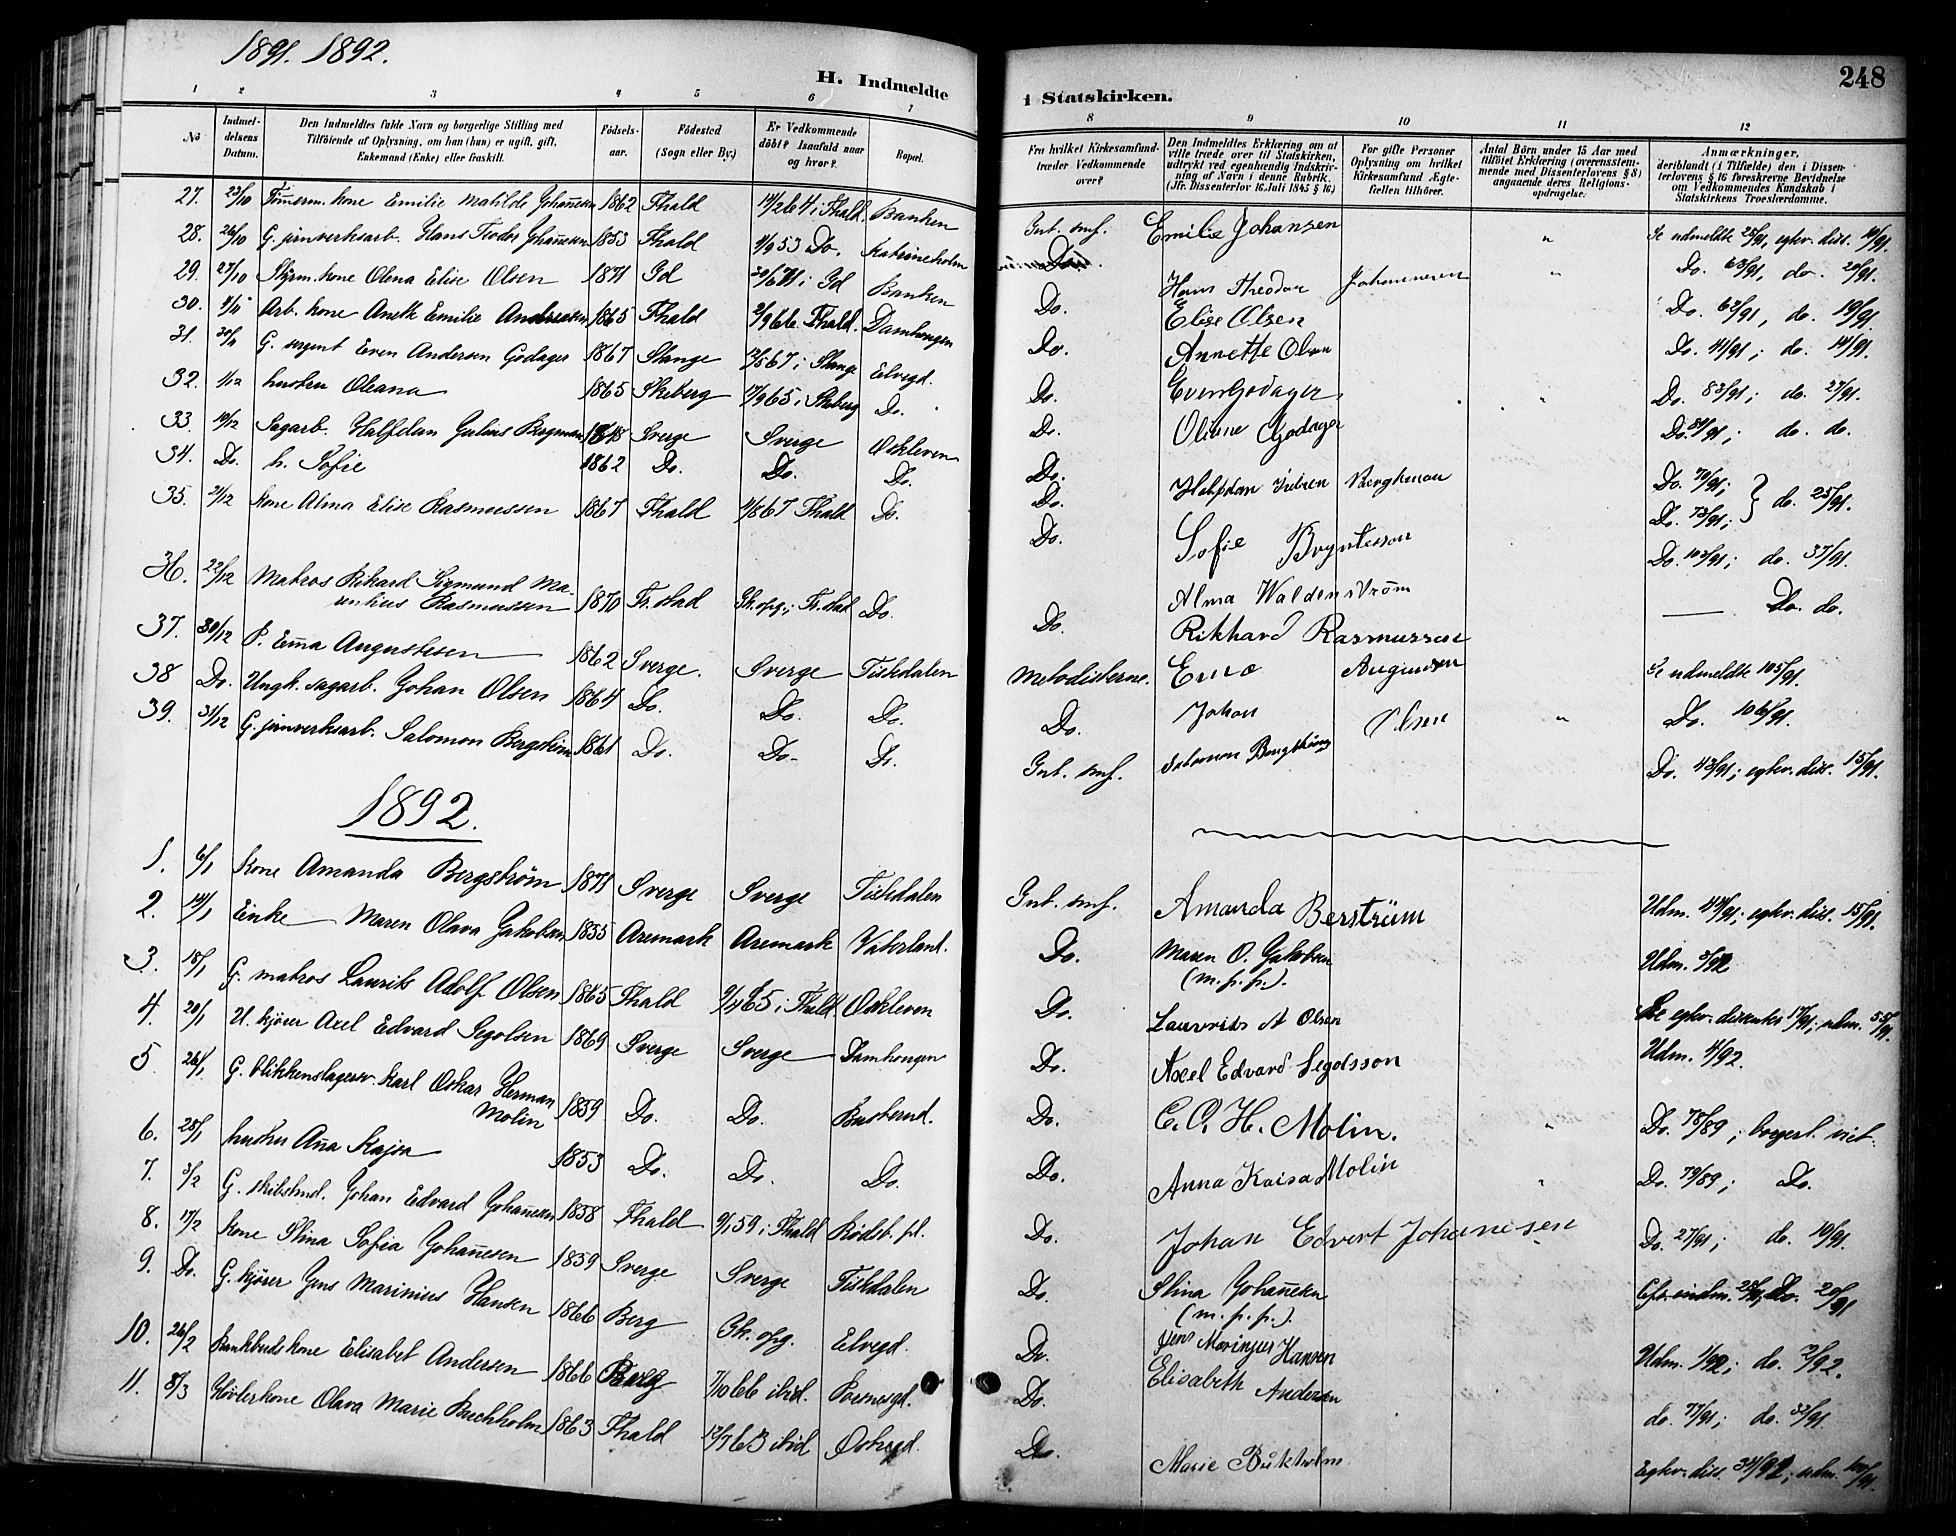 1891. 1892.
H. Indmeldte
i Statskirken.
248
1 2 3 4 5 6 7
8 9 10 11 12
No
Indmel-
delsens
Datum.
Den Indmeldtes fulde Navn og borgerlige Stilling med
Tilföiende af Oplysning, om han (hun) er ugift, gift,
Enkemand (Enke) eller fraskilt.
Födsels-
aar.
Födested
(Sogn eller By.)
Er Vedkommende
döbt? Isaafald naar
og hvor?
Bopæl.
Fra hvilket Kirkesamfund
træder Vedkommende
over?
Den Indmeldtes Erklæring om at
ville træde over til Statskirken,
udtrykt ved egenhændig Indskriv-
ning af Navn i denne Rubrik.
(Jfr. Dissenterlov 16. Juli 1845 § 16)
For gifte Personer
Oplysning om hvilket
Kirkesamfund Ægte-
fællen tilhörer.
Antal Börn under 15 Aar med
tilföiet Erklæring (overensstem-
mende med Dissenterlovens § 8)
angaaende deres Religions-
opdragelse.
Anmærkninger,
deriblandt (i Tilfælde) den i Dissen-
terlovens § 16 foreskrevne Bevidnelse
om Vedkommendes Kundskab i
Statskirkens Troeslærdomme.
27. 23/10 Tömerm. kone Emilie Matilde Johanesen 1862 Fhald 14/2 64 i Fhald. Banken Int. smf. Emilie Johansen " Se udmeldte 25/91, eghv. diss. 10/91.
28. 26/10 G. jernverksarb. Hans Teodor Johanesen 1853 Fhald 4/9 53 Do. Katrineholm Do. Hans Theodor Johannesen " Do. 63/91, do. 20/91.
29. 27/10 Styrm. kone Olena Elise Olsen 1871 Id 30/6 71 i Id Banken Do. Elise Olsen Do. 62/91, do. 19/91.
30. 4/11 Arb. kone Aneth Emilie Andreasen 1865 Fhald 2/9 66 Fhald. Damhaugen Do. Annette Olsen Do. 41/91; do. 14/91.
31. 30/11 G. sergent Even Andersen Godager 1867 Stange 12/5 67 i Stange Elvegd. Do. Even Godager Do. 83/91; do. 27/91.
32. 1/12 hustru Oleana 1865 Skeberg 17/9 65 i Skeberg Do. Do. Oliane Godager Do. 84/91; do. do.
33. 19/12 Sagarb. Halfdan Julius Bergman 1848 Sverge Sverge Oskleven Do. Halfdan Julsen Berghman Do. 70/91;
34. Do. h. Sofie 1862 Do. Do. Do. Do. Sofie Bryntesson Do. 73/91; } do. 25/91.
35. 21/12 kone Alma Elise Rasmussen 1867 Fhald 4/8 67 Fhald Do. Do. Alma Waldenström Do. 102/91; do. 37/91.
36. 22/12 Matros Rikard Sigmund Ma-
renius Rasmussen 1870 Fr.stad Gk. opg. i Fr.stad Do. Do. Rikhard Rasmussen — Do. do.
37. 30/12 P. Ema Augustesen 1862 Sverge. Sverge Tistedalen Metodisterne. Ema Augusten Se udmeldte 105/91.
38 Do. Ungk. sagarb. Johan Olsen 1864 Do. Do. Do. Do. Johan Olsen " Do. 106/91.
39. 31/12 G. jernverksarb. Salomon Bergström 1861 Do. Do. Do. Int. smf. Salomon Bergström Do. 43/91; eghv. diss. 15/91.
1892.
1. 6/1 Kone Amanda Bergström 1871 Sverge Sverge Tistedalen Int. smf. Amanda Berström Udm. 44/91; eghv. diss. 15/91.
2. 14/1 Enke Maren Olava Jakobsen 1835 Aremark Aremark Vaterland. Do. Maren O. Jakobsen
(m. p. p.). Udm. 3/92
3. 18/1 G. matros Laurits Adolf Olsen 1865 Fhald 9/4 65 i Fhald Oskleven Do. Lauvrits A Olsen Se eghv. dissenter 17/91; udm. 55/91.
4. 20/1 U. kjörer Axel Edvard Segolsen 1869 Sverge Sverge Damhaugen Do. Axel Edvard Segolsson Udm. 4/92.
5 26/1 G. blikkenslagersv. Karl Oskar Herman
Molin 1859 Do. Do. Buskerud. Do. C. O. H. Molin. " Do. 78/89; borgerl. viet.
6. 28/1 hustru Ana Kajsa 1853 Do. Do. Do. Do. Anna Kaisa Molin " Do. 79/89; Do.
7. 3/2 G. skibstmd. Johan Edvard Johanesen 1858 Fhald 9/1 59 i Fhald Rödsb. pl. Do. Johan Edvert Johanesen Do. 27/91; do. 10/91.
8. 17/2 kone Stina Sofia Johanesen 1859 Sverge Sverge Tistedalen Do. Stina Johanesen
(m. p. p.). Cfr. indm. 28/91; Do. 20/91
9. Do. G. kjörer Jens Marinius Hansen 1866 Berg Gk. opg. Elvegd. Do. Jens Marinjus Hansen Udm. 1/92; do. 2/92.
10. 26/2 Bankbuds kone Elisabet Andersen 1866 Berg 7/10 66 ibid. Do. Elisabeth Andersen do. 77/91; do. 32/91.
11. 8/3 Hövlerkone Olava Marie Buchholm 1863 Fhald 12/7 63 ibid Do. Marie Bukholm Eghv. diss. 34/92; udm. 100/91.